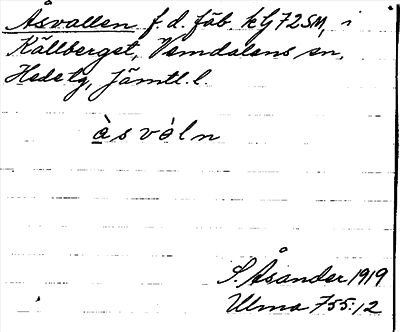 Åsvallen f.d. fäb. kLj72SM, i
Källberget, Vemdalens sn,
Hede tg, Jämtl. l.
àsvàln
S. Åsander 1919
Ulma 755:12